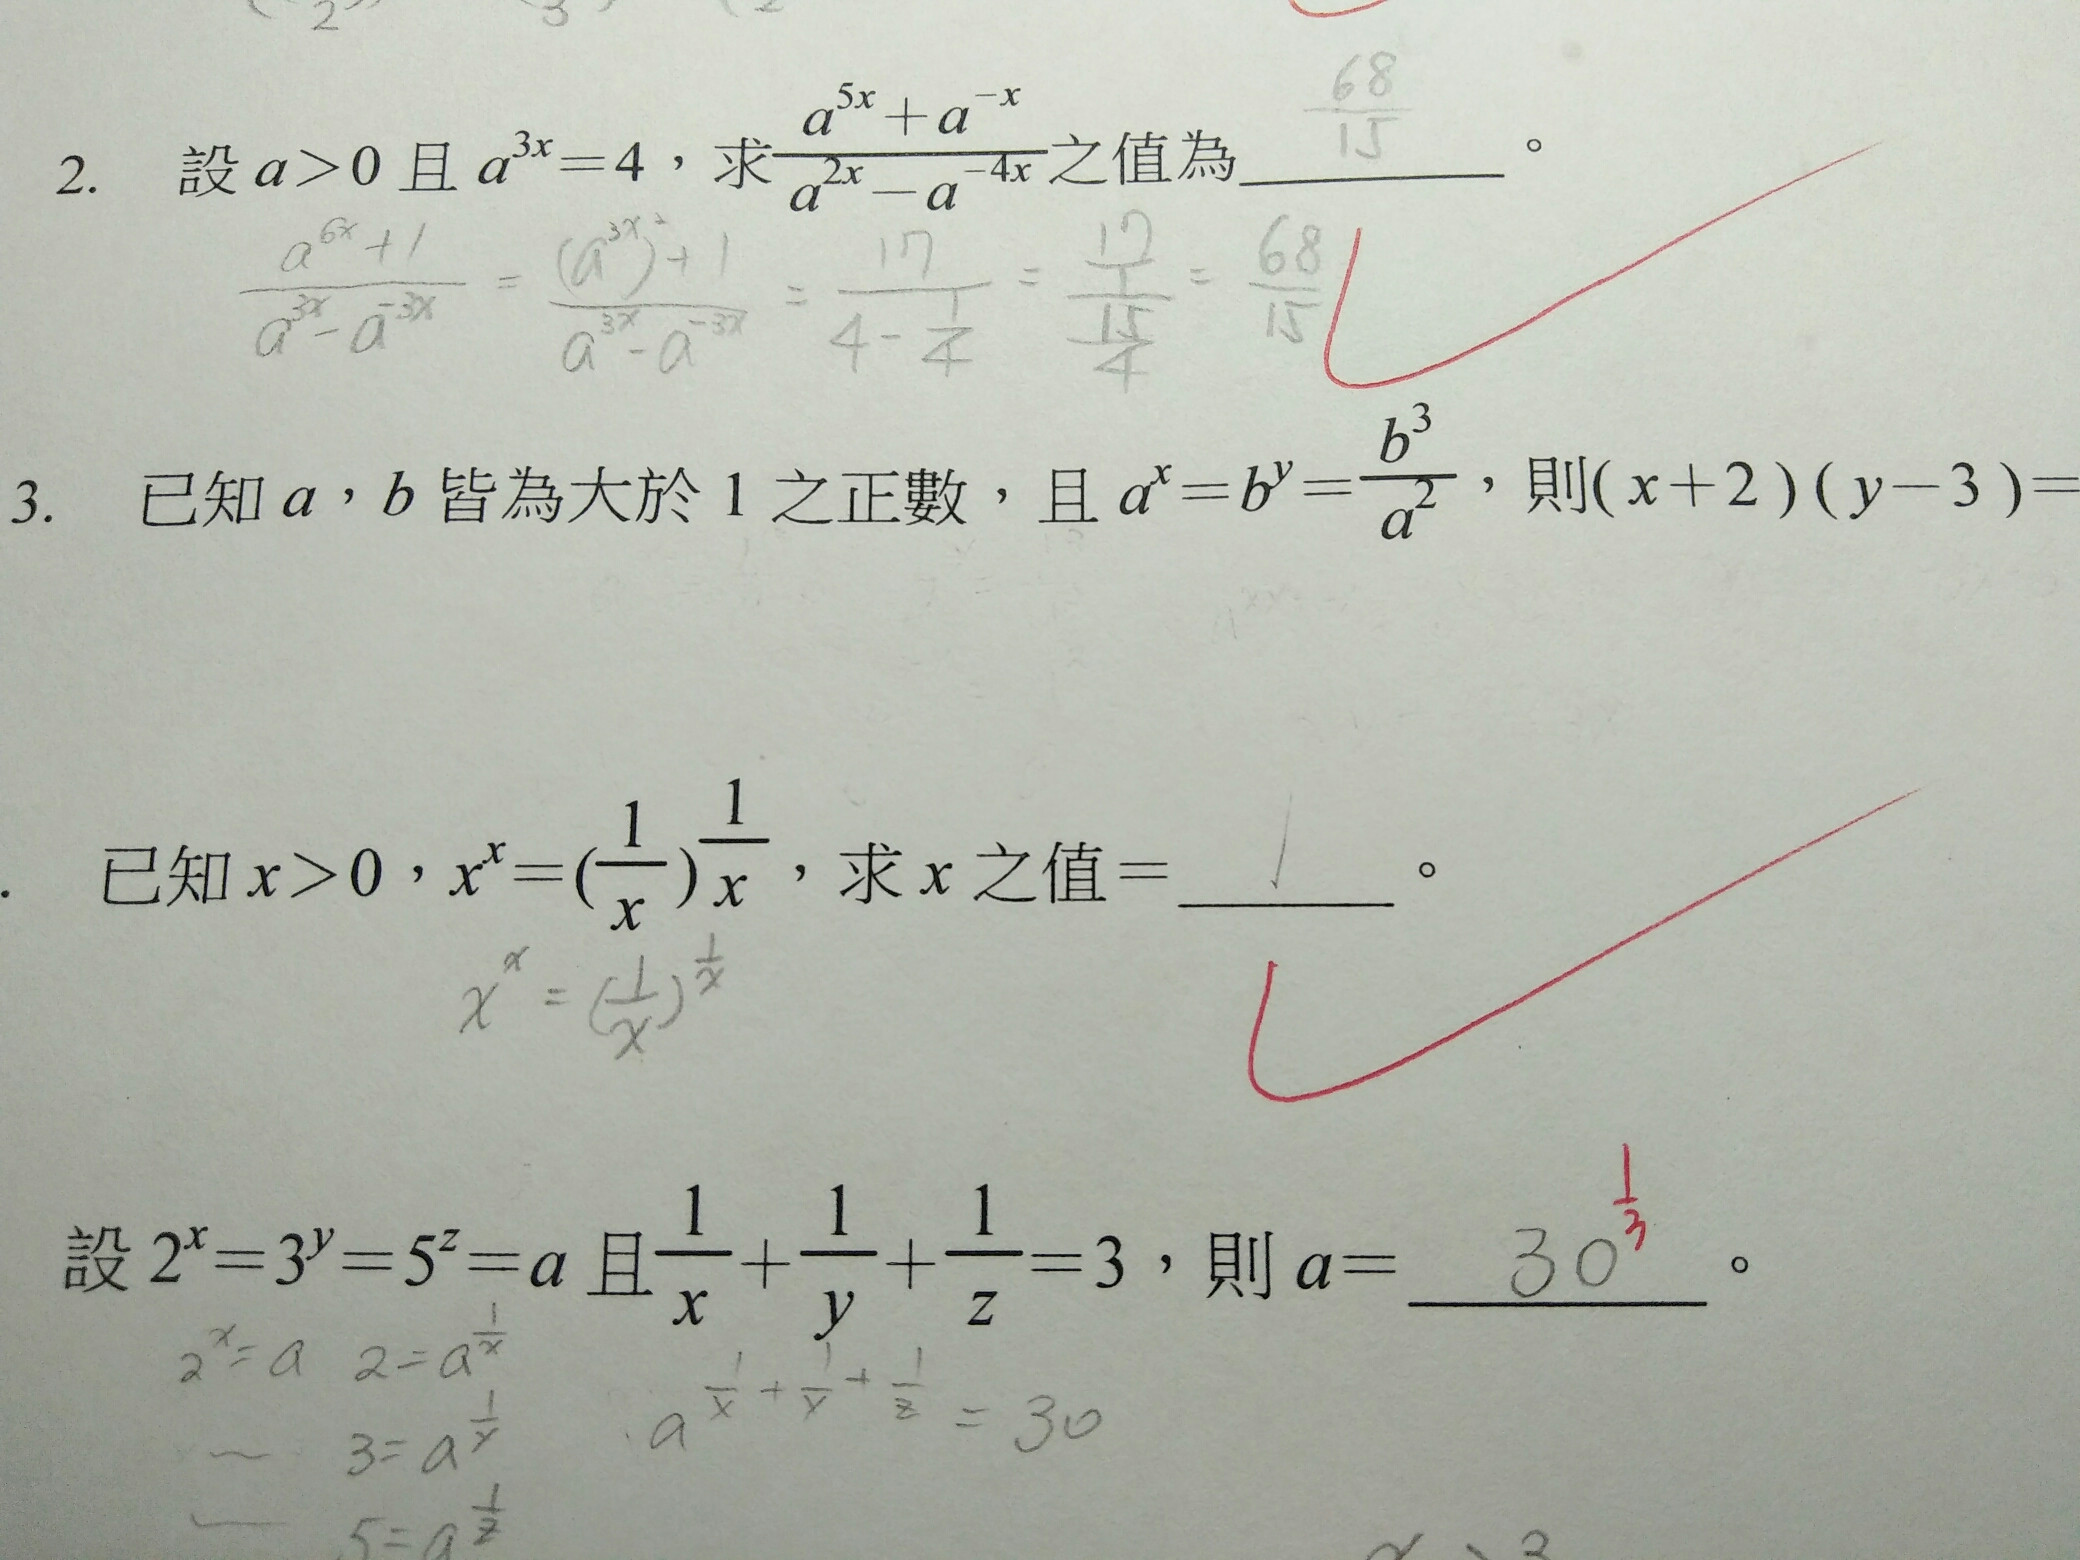 2. 設 a>0 且 a^{3x}=4，求 \frac{a^{5x}+a^{-x}}{a^{2x}-a^{-4x}} 之值為 \frac{68}{15} 。
\frac{a^{6x}+1}{a^{3x}-a^{-3x}} = \frac{(a^{3x})^2+1}{a^{3x}-a^{-3x}} = \frac{17}{4-\frac{1}{4}} = \frac{\frac{17}{1}}{\frac{15}{4}} = \frac{68}{15}
3. 已知 a，b 皆為大於 1 之正數，且 a^x=b^y=\frac{b^3}{a^2}，則(x+2)(y-3)=
. 已知 x>0，x^x=(\frac{1}{x})^{\frac{1}{x}}，求 x 之值= 1 。
x^x = (\frac{1}{x})^{\frac{1}{x}}
設 2^x=3^y=5^z=a 且 \frac{1}{x}+\frac{1}{y}+\frac{1}{z}=3，則 a= 30^{\frac{1}{3}} 。
2^x=a 2=a^{\frac{1}{x}} a^{\frac{1}{x}+\frac{1}{y}+\frac{1}{z}} = 30
3=a^{\frac{1}{y}}
5=a^{\frac{1}{z}}